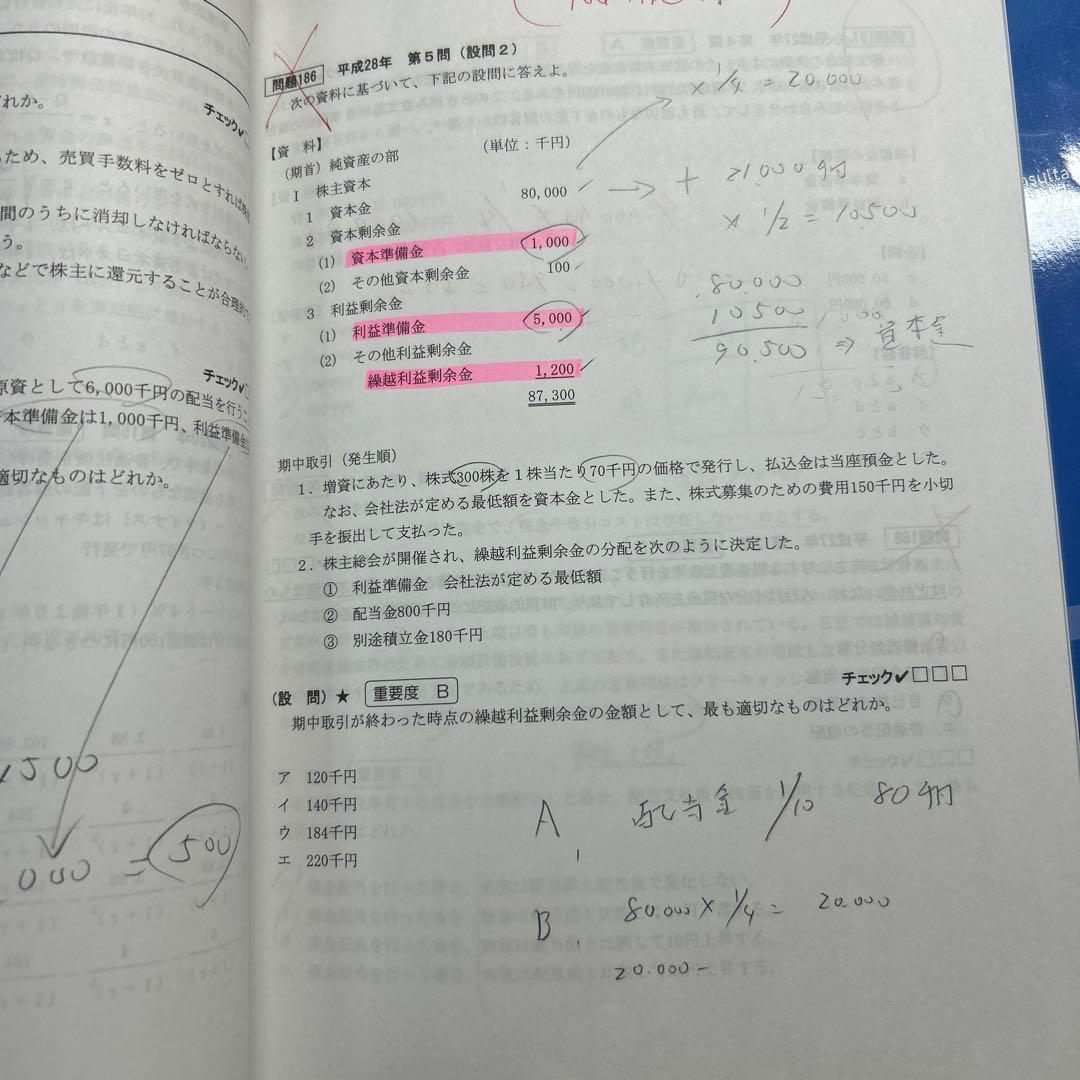 どれか。
チェック✓□
ため、売買手数料をゼロとすれば
間のうちに消却しなければならない
う。
などで株主に還元することが合理的で
チェック✓□
原資として6,000千円の配当を行うこ
本準備金は1,000千円、利益準備金
適切なものはどれか。
1500
000 = 500
問題186 平成28年 第5問（設問2）
次の資料に基づいて、下記の設問に答えよ。
× 1/4 = 20.000
【資 料】
（期首）純資産の部 （単位：千円）
Ⅰ 株主資本
1 資本金 80,000
→ + 21.000千円
× 1/2 = 10500
2 資本剰余金
(1) 資本準備金 1,000
(2) その他資本剰余金 100
3 利益剰余金
(1) 利益準備金 5,000
(2) その他利益剰余金
繰越利益剰余金 1,200
87,300
80.000
10500
90.500 ⇒ 資本金
期中取引（発生順）
1．増資にあたり、株式300株を1株当たり70千円の価格で発行し、払込金は当座預金とした。
なお、会社法が定める最低額を資本金とした。また、株式募集のための費用150千円を小切
手を振出して支払った。
2．株主総会が開催され、繰越利益剰余金の分配を次のように決定した。
① 利益準備金 会社法が定める最低額
② 配当金800千円
③ 別途積立金180千円
チェック✓□□□
（設 問）★ 重要度 B
期中取引が終わった時点の繰越利益剰余金の金額として、最も適切なものはどれか。
ア 120千円
イ 140千円
ウ 184千円
エ 220千円
A 配当金 1/10 80千円
B 80.000 × 1/4 = 20.000
20.000 −